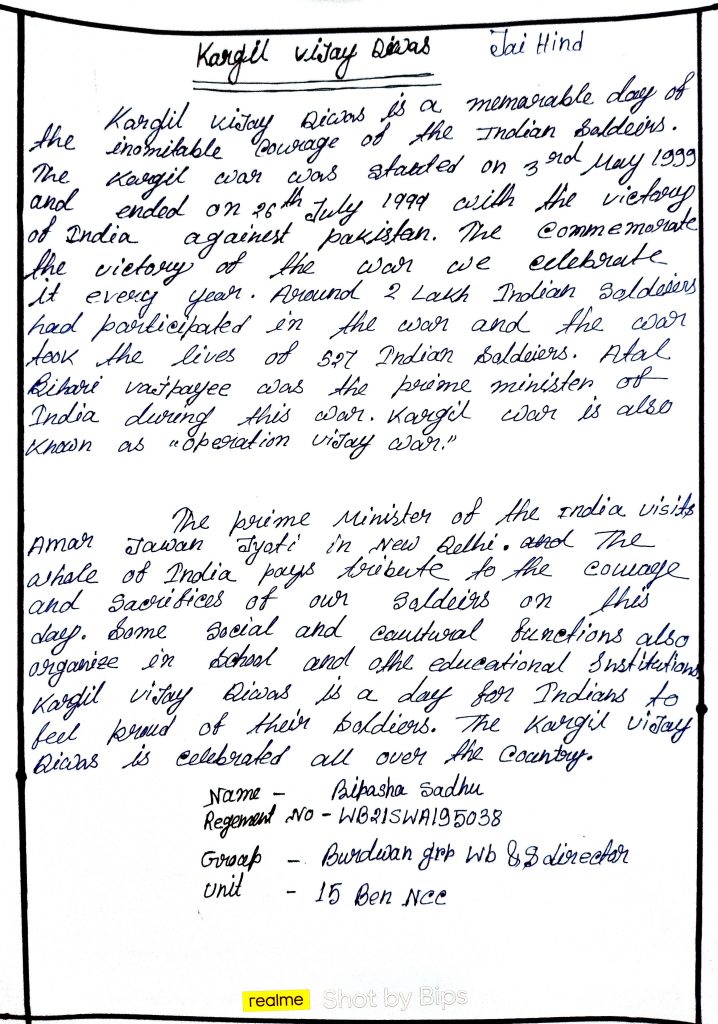 Kargil Vijay Diwas Jai Hind
Kargil Vijay Diwas is a memorable day of
the inomitable courage of the Indian Saldeirs.
The Kargil war was started on 3rd May 1999
and ended on 26th July 1999 with the victory
of India againest pakistan. The commemorate
the victory of the war we celebrate
it every year. Around 2 Lakh Indian Saldeiers
had participated in the war and the war
took the lives of 527 Indian Saldeiers. Atal
Bihari vajpayee was the prime minister of
India during this war. Kargil war is also
known as "operation vijay war."
The prime Minister of the India visits
Amar Jawan Jyoti in New Delhi. and The
whole of India pays tribute to the courage
and sacrifices of our Saldeirs on this
day. Some social and cautural functions also
organize in School and othe educational Institutions
Kargil vijay Diwas is a day for Indians to
feel proud of their Soldiers. The Kargil vijay
Diwas is celebrated all over the Country.
Name - Bipasha Sadhu
Regement No - WB21SWA195038
Group - Burdwan grp Wb & S director
Unit - 15 Ben NCC
realme Shot by Bips